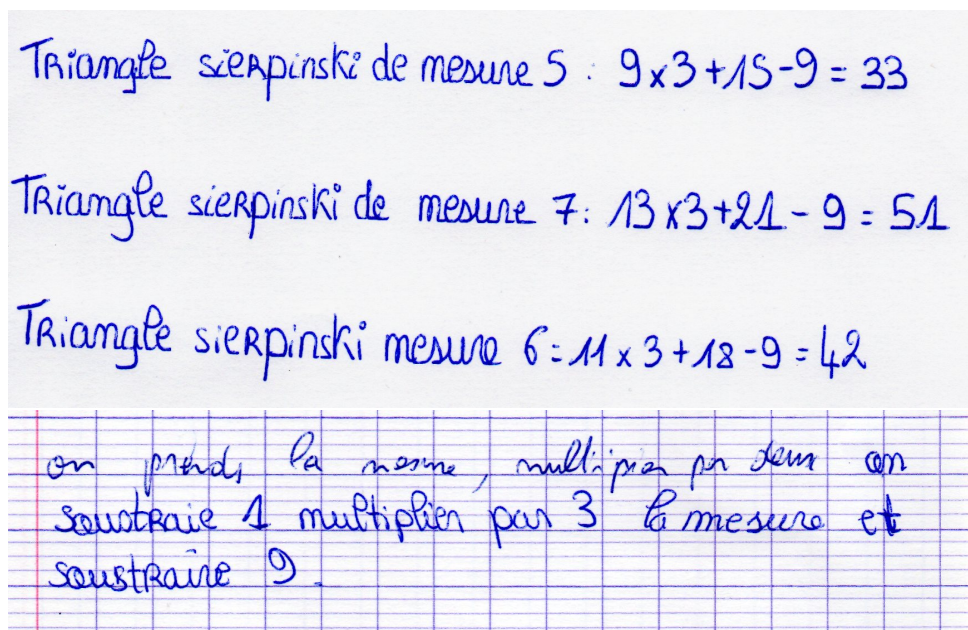 Triangle sierpinski de mesure 5 : 9x3+15-9 = 33
Triangle sierpinski de mesure 7 : 13x3+21-9 = 51
Triangle sierpinski mesure 6 = 11x3+18-9 = 42
on prends la mesure, multiplier par deux on
soustraie 1 multiplier par 3 la mesure et
soustraire 9.